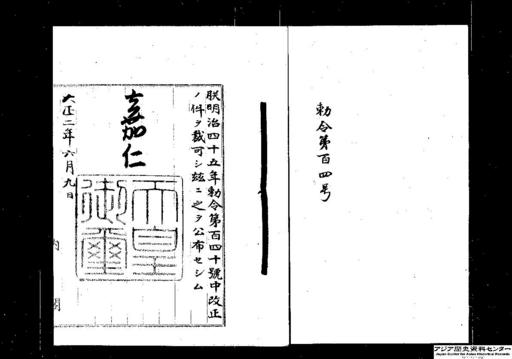 勅令第百四号
朕明治四十五年勅令第百四十號中改正
ノ件ヲ裁可シ玆ニ之ヲ公布セシム
嘉仁
天皇
御璽
大正二年六月九日
内閣
アジア歴史資料センター
Japan Center for Asian Historical Records